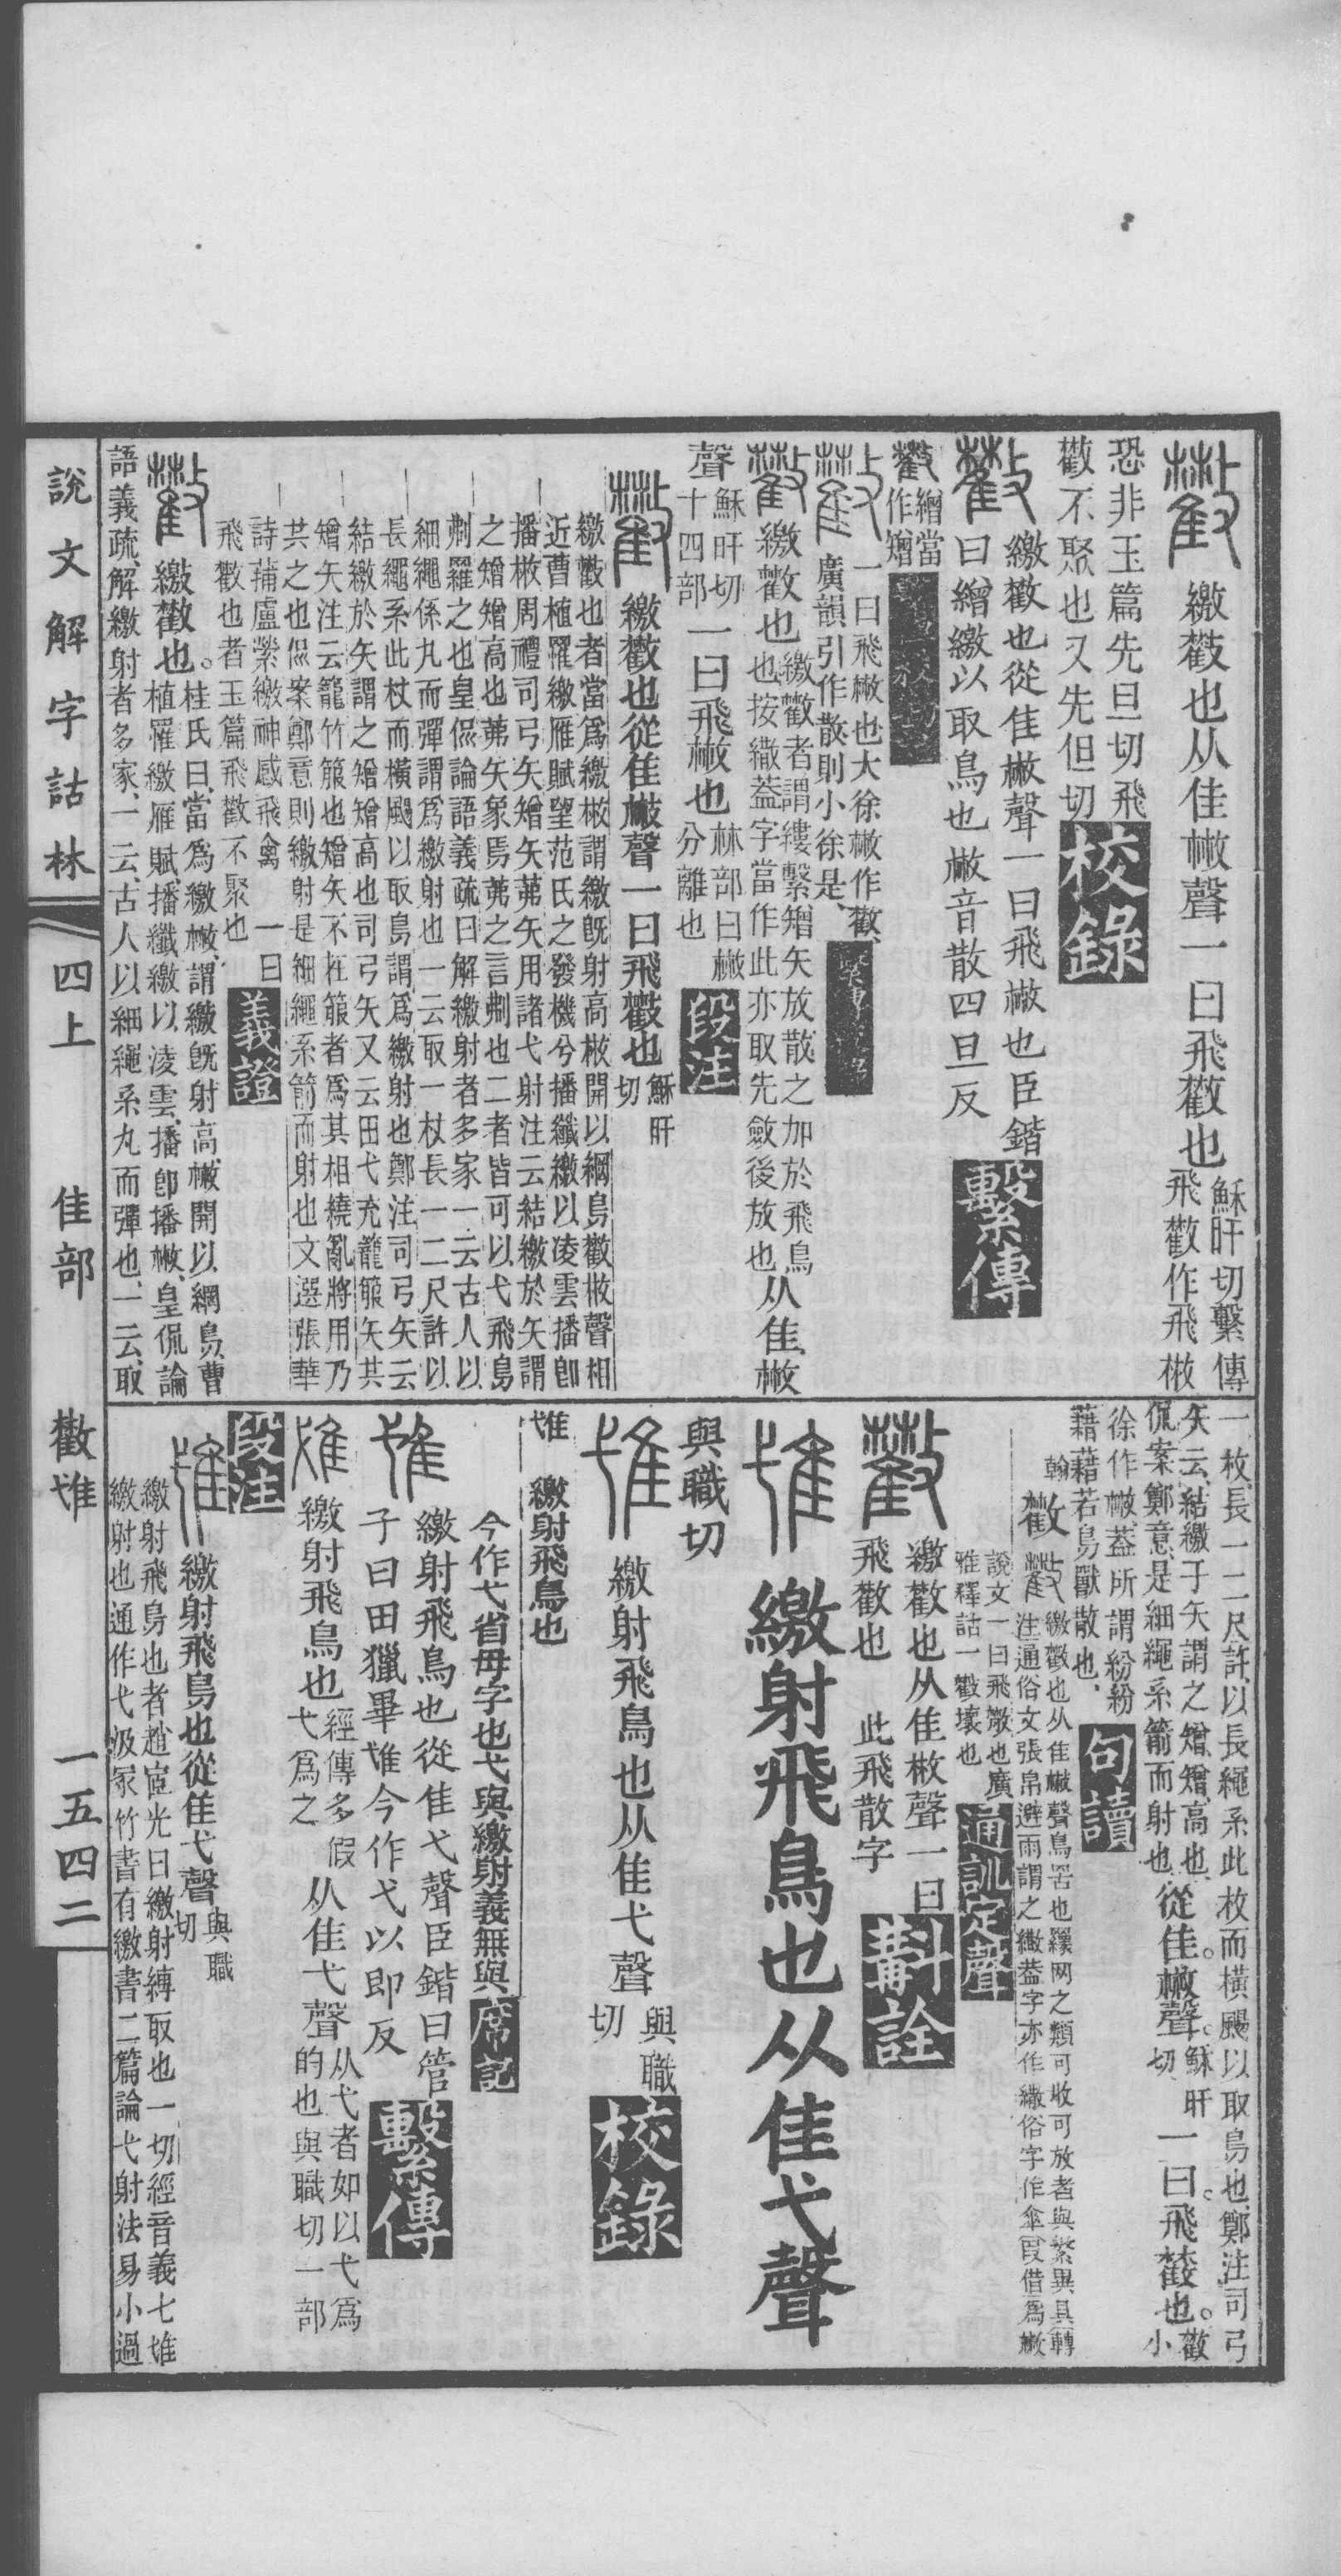 繳𢿱也从隹㪔聲一曰飛𢿱也
穌旰切繫傳
飛𢿱作飛㪔
恐非玉篇先旦切飛
𢿱不聚也又先但切
校錄
繳𢿱也從隹㪔聲一曰飛㪔也臣鍇
曰繒繳以取鳥也㪔音散四旦反
繫傳
繒當
作矰
一曰飛㪔也大徐㪔作𢿱
廣韻引作散則小徐是
繳𢿱也
繳𢿱者謂縷繫矰矢放散之加於飛鳥
也按繖蓋字當作此亦取先斂後放也
从隹㪔
聲
穌旰切
十四部
一曰飛㪔也
林部曰㪔
分離也
段注
繳𢿱也從隹㪔聲一曰飛𢿱也
穌旰
切
繳𢿱也者當爲繳㪔謂繳旣射高㪔開以網鳥𢿱㪔聲相
近曹植羅繳雁賦望范氏之發機兮播纖繳以凌雲播卽
播㪔周禮司弓矢矰矢茀矢用諸弋射注云結繳於矢謂
之矰矰高也茀矢象焉茀之言刜也二者皆可以弋飛鳥
刜羅之也皇侃論語義疏曰解繳射者多家一云古人以
細繩係丸而彈謂爲繳射也一云取一杖長一二尺許以
長繩系此杖而橫颺以取鳥謂爲繳射也鄭注司弓矢云
結繳於矢謂之矰矰高也司弓矢又云田弋充籠箙矢共
矰矢注云籠竹箙也矰矢不在箙者爲其相繞亂將用乃
共之也侃案鄭意則繳射是細繩系箭而射也文選張華
詩蒲盧縈繳神感飛禽
一曰
飛𢿱也者玉篇飛𢿱不聚也
義證
繳𢿱也
桂氏曰當爲繳㪔謂繳旣射高㪔開以網鳥曹
植羅繳雁賦播纖繳以淩雲播卽播㪔皇侃論
語義疏解繳射者多家一云古人以細繩系丸而彈也一云取
一枚長一二尺許以長繩系此枚而橫颺以取鳥也鄭注司弓
矢云結繳于矢謂之矰矰高也
侃案鄭意是細繩系箭而射也
從隹㪔聲
穌旰
切
一曰飛𢿱也
𢿱小
徐作㪔蓋所謂紛紛
藉藉若鳥獸散也
句讀
翰
𢿱
繳𢿱也从隹㪔聲鳥罟也羅网之類可收可放者與繁異具轉
注通俗文張帛避雨謂之繖蓋字亦作繖俗字作傘叚借爲㪔
說文一曰飛㪔也廣
雅釋詁一𢿱壞也
通訓定聲
繳𢿱也从隹㪔聲一曰
飛𢿱也
此飛散字
斠詮
繳射飛鳥也从隹弋聲
與職切
繳射飛鳥也从隹弋聲
與職
切
校錄
隿
繳射飛鳥也
今作弋省毋字也弋與繳射義無與
席記
繳射飛鳥也從隹弋聲臣鍇曰管
子曰田獵畢隿今作弋以卽反
繫傳
繳射飛鳥也
經傳多假
弋爲之
从隹弋聲
从弋者如以弋爲
的也與職切一部
段注
繳射飛鳥也從隹弋聲
與職
切
繳射飛鳥也者趙宧光曰繳射縛取也一切經音義七隿
繳射也通作弋汲冢竹書有繳書二篇論弋射法易小過
說文解字詁林
四上
隹部
𢿱隿
一五四二